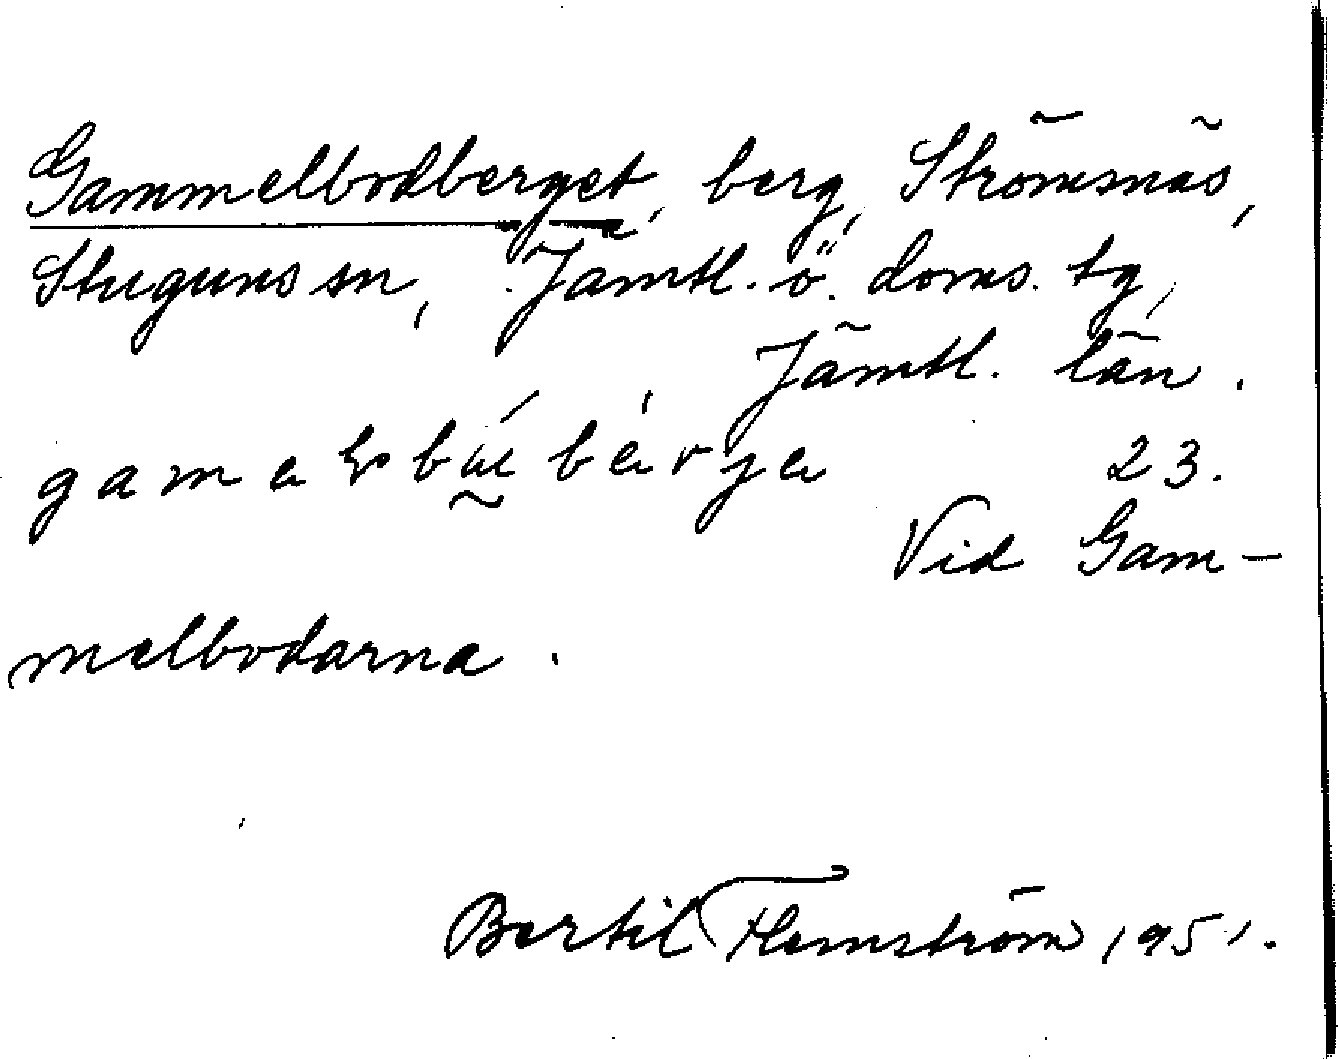 Gammelbodberget, berg, Strömsnäs,
Stuguns sn, Jämtl. ö. doms. tg,
Jämtl. län.
23.
Vid Gam-
melbodarna.
Bertil Flemström 1951.